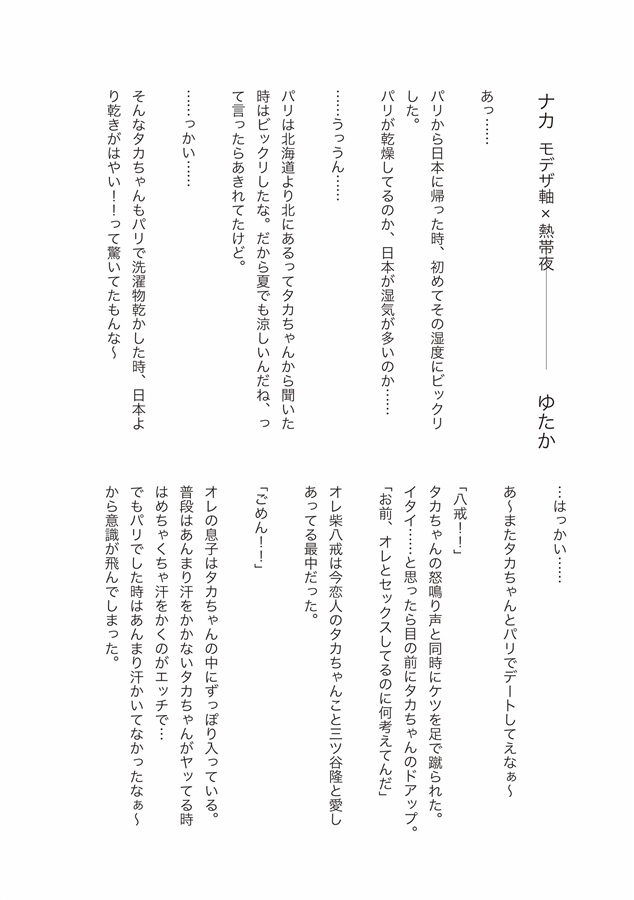 ナカ モデザ軸×熱帯夜――――― ゆたか
あっ……
パリから日本に帰った時、初めてその湿度にビックリ
した。
パリが乾燥してるのか、日本が湿気が多いのか……
……うっうん……
パリは北海道より北にあるってタカちゃんから聞いた
時はビックリしたな。だから夏でも涼しいんだね、っ
て言ったらあきれてたけど。
……っかい……
そんなタカちゃんもパリで洗濯物乾かした時、日本よ
り乾きがはやい！！って驚いてたもんな～
…はっかい……
あ～またタカちゃんとパリでデートしてえなぁ～
「八戒！！」
タカちゃんの怒鳴り声と同時にケツを足で蹴られた。
イタイ……と思ったら目の前にタカちゃんのドアップ。
「お前、オレとセックスしてるのに何考えてんだ」
オレ柴八戒は今恋人のタカちゃんこと三ツ谷隆と愛し
あってる最中だった。
「ごめん！！」
オレの息子はタカちゃんの中にずっぽり入っている。
普段はあんまり汗をかかないタカちゃんがヤッてる時
はめちゃくちゃ汗をかくのがエッチで…
でもパリでした時はあんまり汗かいてなかったなぁ～
から意識が飛んでしまった。